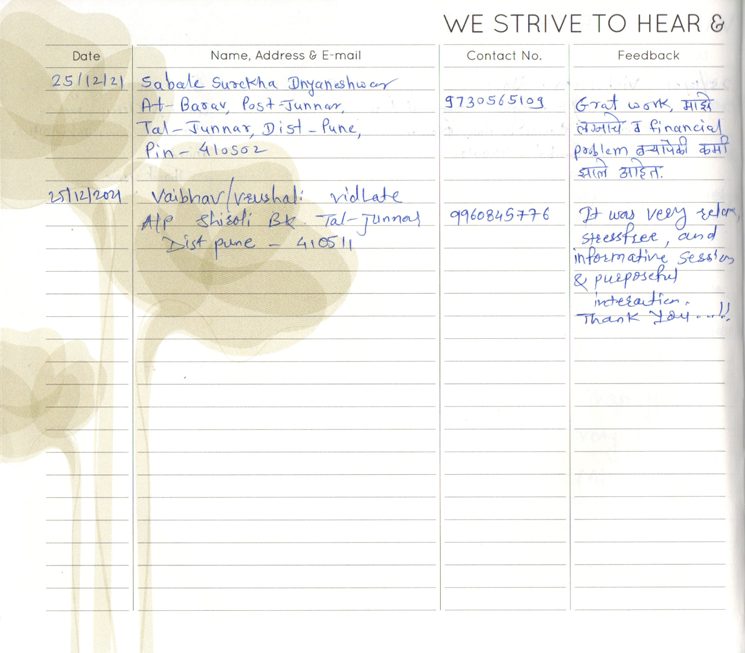 WE STRIVE TO HEAR &
Date Name, Address & E-mail Contact No. Feedback
25/12/21 Sabale Surekha Dnyaneshwar
At- Barav, Post-Junnar, 9730565109 Grat work, माझे
Tal-Junnar, Dist-Pune, लग्नाचे व financial
Pin-410502 problem बऱ्यापैकी कमी
झाले आहेत.
25/12/2021 Vaibhav/Vrushali vidhate
A/P Shiroli Bk Tal-Junnar 9960845776 It was very relax,
Dist pune - 410511 stressfree, and
informative session
& purposeful
interaction.
Thank You....!!